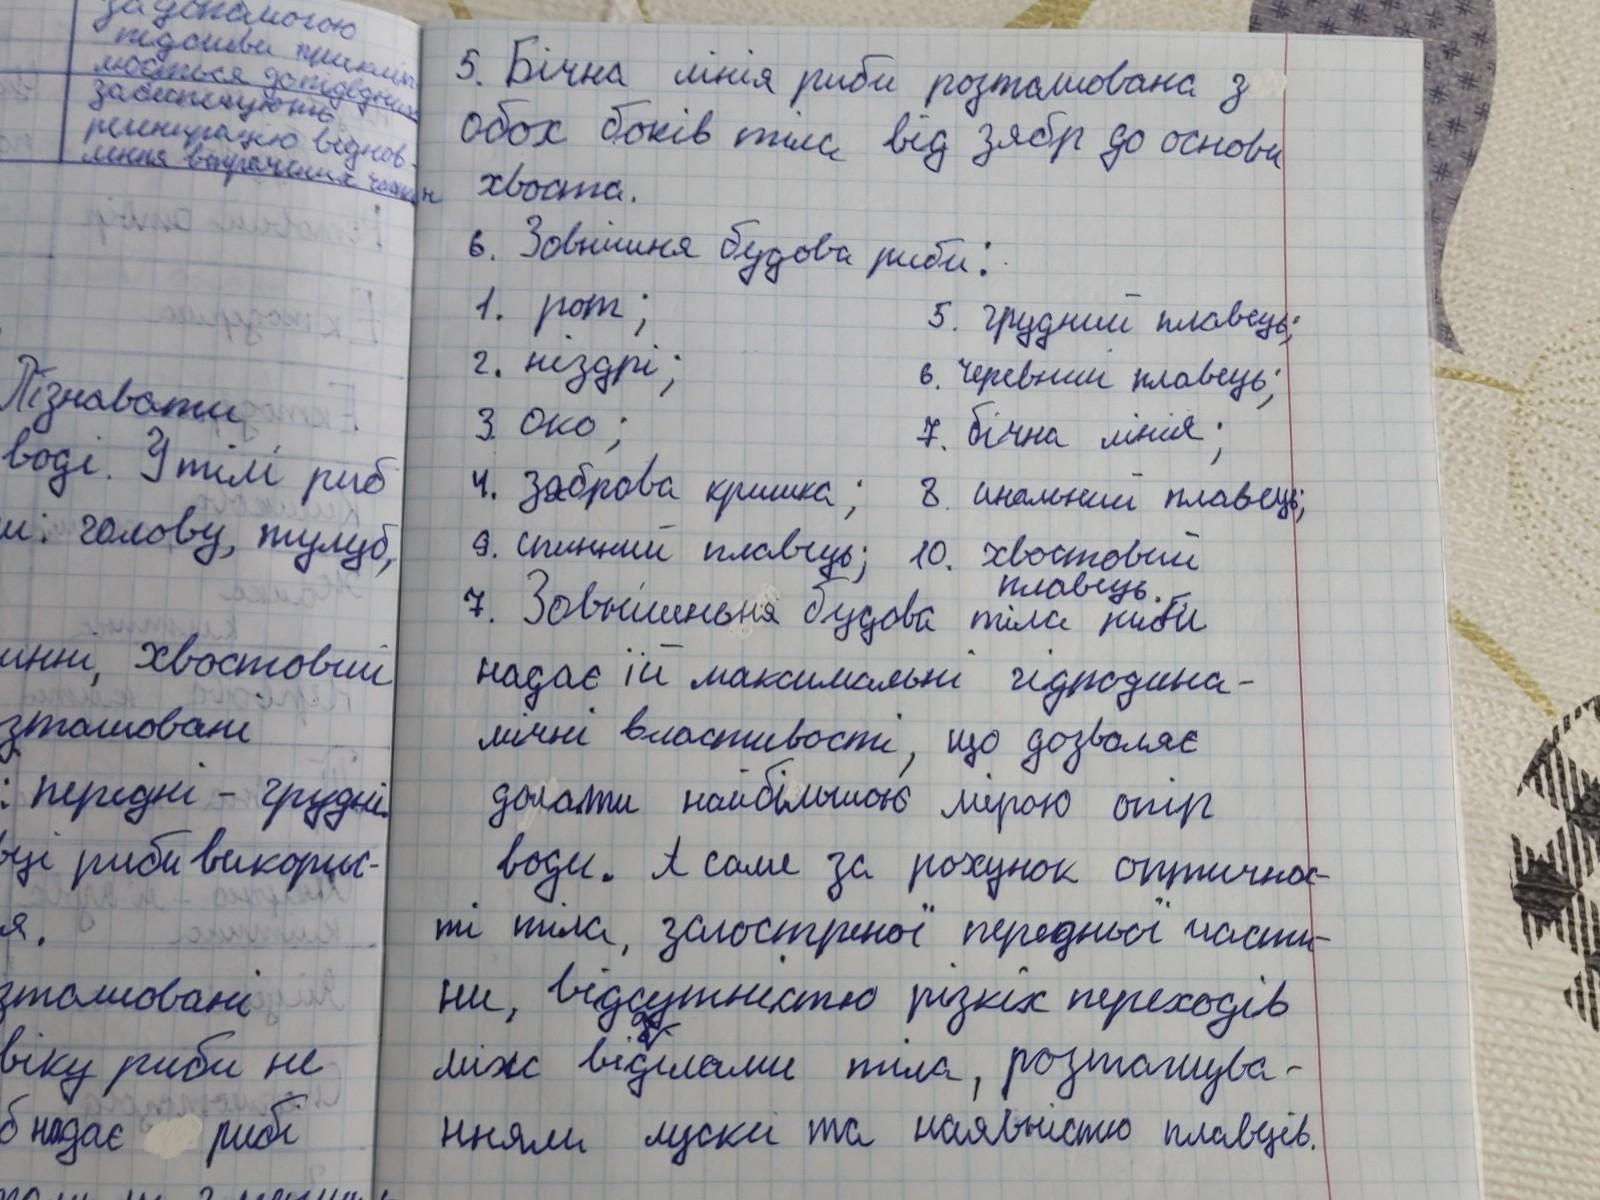 за допомогою
підошви приклею-
юється до підводних
забезпечують
регенерацію віднов-
лення втрачених частин
Пізнавати
воді. У тілі риб
и: голову, тулуб,
инні, хвостовий
зташовані
: передні - грудні.
вці риби викорис-
я.
зташовані
віку риби не
б надає рибі
5. Бічна лінія риби розташована з
обох боків тіла від зябр до основи
хвоста.
6. Зовнішня будова риби:
1. рот; 5. грудний плавець;
2. ніздрі; 6. черевний плавець;
3. око; 7. бічна лінія;
4. заброва кришка; 8. анальний плавець;
9. спинний плавець; 10. хвостовий
плавець.
7. Зовнішньня будова тіла риби
надає їй максимальні гідродина-
мічні властивості, що дозволяє
долати найбільшою мірою опір
води. А саме за рохунок оптичнос-
ті тіла, загостреної передньої части-
ни, відсутністю різкіх переходів
між відділами тіла, розташува-
нням луски та наявністю плавців.